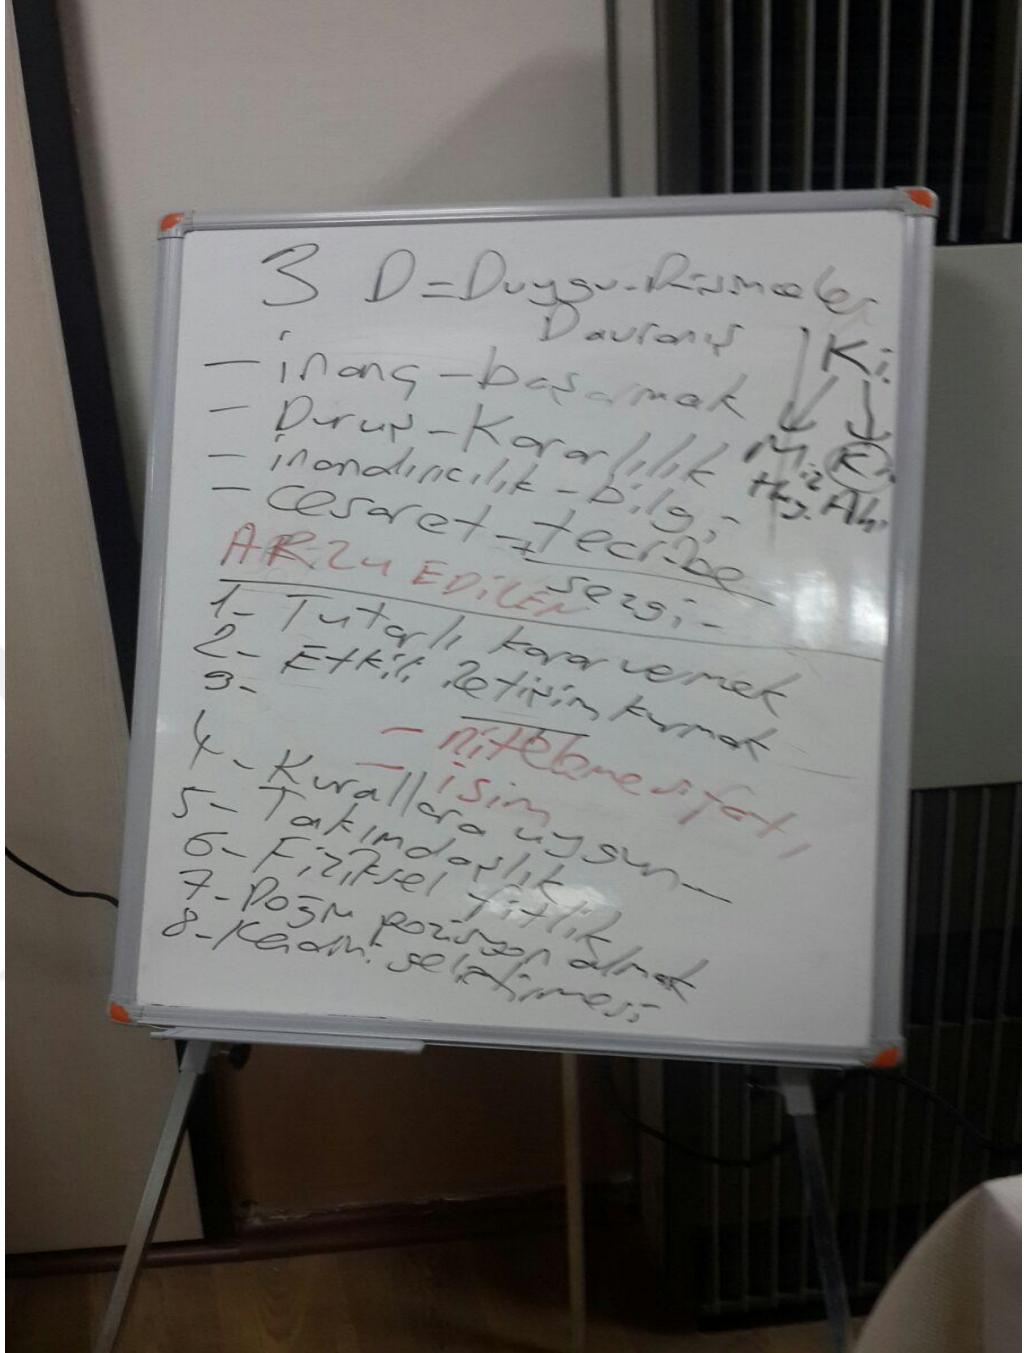 3 D = Duygu - Düşünceler
Davranış
Ki
- inanç - başarmak
- Duruş - Kararlılık
M.iz Ki
- inandırıcılık - bilgi -
Hay. Ah.
- Cesaret - tecrübe
+ sezgi -
ARZU EDİLEN
1- Tutarlı karar vermek
2- Etkili iletişim kurmak
3-
- niteleme sıfatı
- isim
4- Kurallara uygun -
5- Takımdaşlık
6- Fiziksel fitlik
7- Doğru pozisyon almak
8- Kendini geliştirmesi